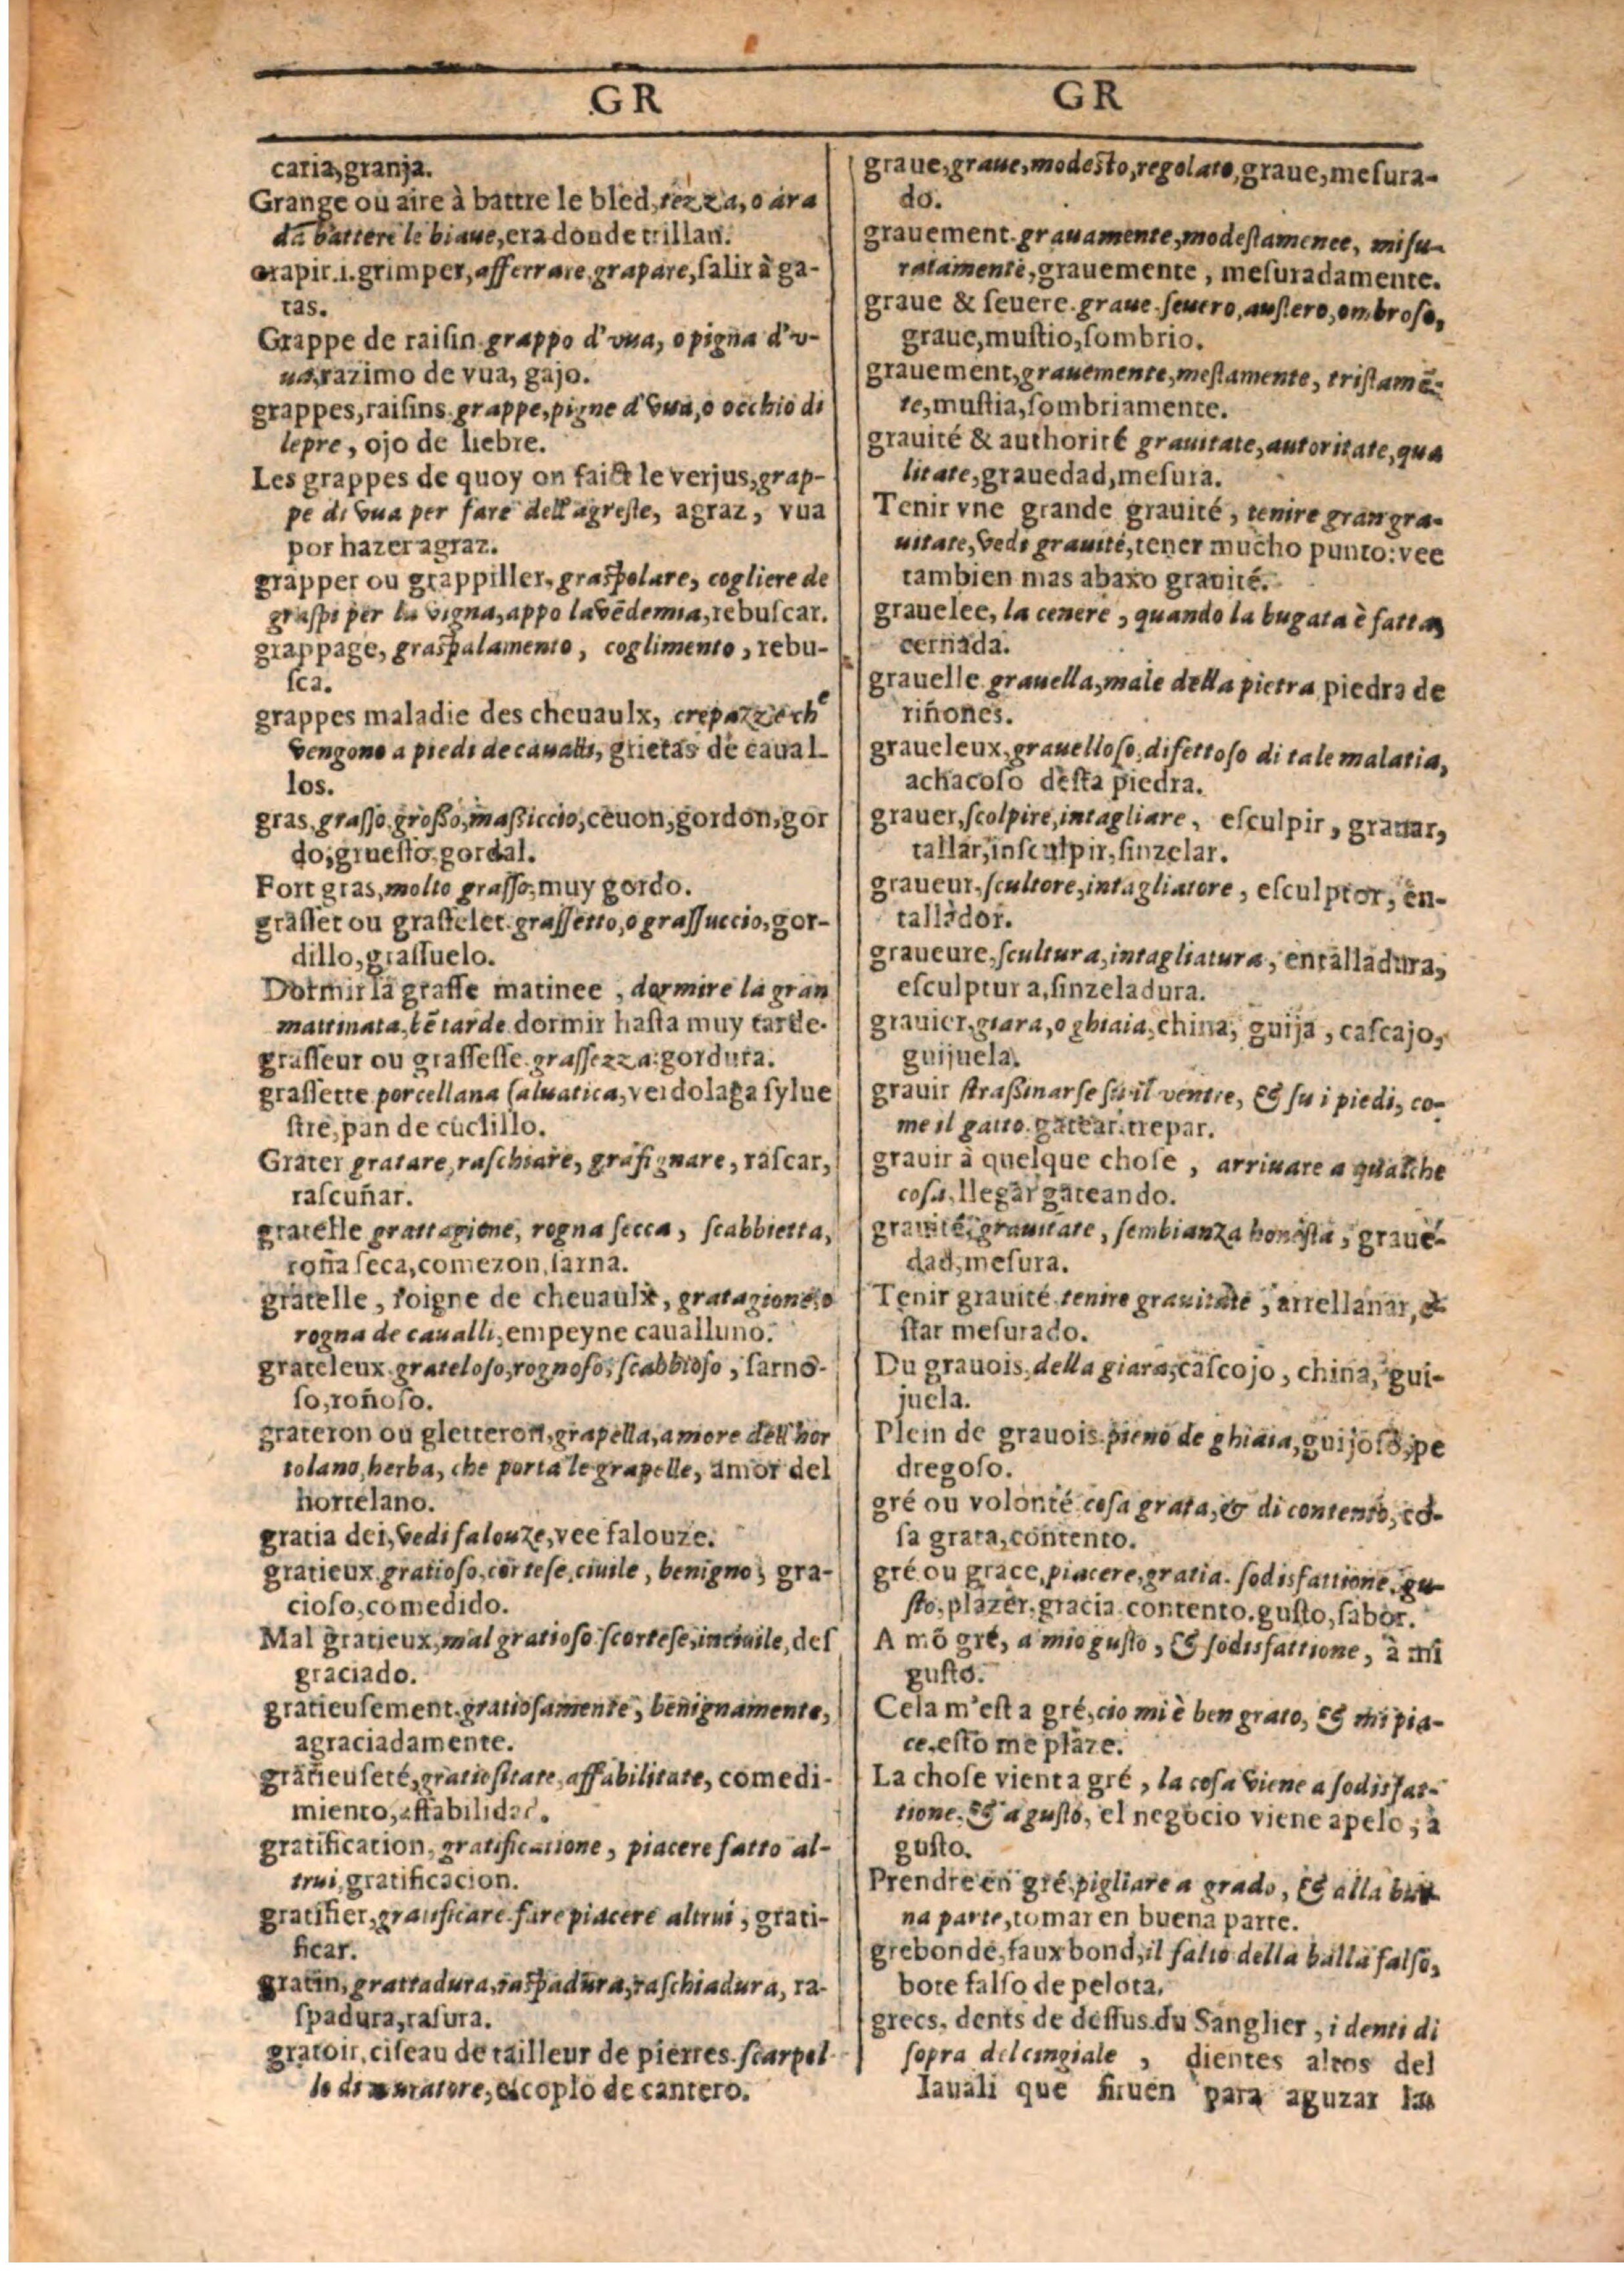 GR
caria, granja.
Grange ou aire à battre le bled, tezza, o ara
da battere le biaue, era donde trillan.
grapir.i.grimper, afferrare, grapare, salir à ga-
tas.
Grappe de raisin. grappo d'vua, o pigna d'v-
ua, razimo de vua, gajo.
grappes, raisins. grappe, pigne d'vua, o occhio di
lepre, ojo de liebre.
Les grappes de quoy on faict le verjus, grap-
pe di vua per fare dell'agreste, agraz, vua
por hazer agraz.
grapper ou grappiller, graspolare, cogliere de
graspi per la vigna, appo la vēdemia, rebuscar.
grappage, graspalamento, coglimento, rebu-
sca.
grappes maladie des cheuaulx, crepazze che
vengono a piedi de caualli, grietas de caual-
los.
gras, grasso, grosso, massiccio, ceuon, gordon, gor
do, gruesso, gordal.
Fort gras, molto grasso, muy gordo.
grasset ou grasselet. grassetto, o grassuccio, gor-
dillo, grassuelo.
Dormir la grasse matinee, dormire la gran
mattinata, bē tarde. dormir hasta muy tarde.
grasseur ou grassesse. grassezza. gordura.
grassette porcellana saluatica, verdolaga sylue
stre, pan de cuclillo.
Grater gratare, raschiare, grafignare, rascar,
rascuñar.
gratelle grattagione, rogna secca, scabbietta,
roña seca, comezon, sarna.
gratelle, roigne de cheuaulx, gratagione, o
rogna de caualli, empeyne cauallluno.
grateleux. grateloso, rognoso, scabbioso, sarno-
so, roñoso.
grateron ou gletteron, grapella, amore dell'hor
tolano, herba, che porta le grapelle, amor del
hortelano.
gratia dei, vedi falouze, vee falouze.
gratieux. gratioso, cortese, ciuile, benigno, gra-
cioso, comedido.
Mal gratieux, mal gratioso. scortese, inciuile, des
graciado.
gratieusement. gratiosamente, benignamente,
agraciadamente.
gratieuseté, gratiositate, affabilitate, comedi-
miento, affabilidad.
gratification, gratificatione, piacere fatto al-
trui, gratificacion.
gratifier, gratificare. fare piacere altrui, grati-
ficar.
gratin, grattadura, raspadura, raschiadura, ra-
spadura, rasura.
gratoir, ciseau de tailleur de pierres. scarpel-
lo di muratore, escoplo de cantero.
GR
graue, graue, modesto, regolato, graue, mesura-
do.
grauement. grauamente, modestamenee, misu-
ratamente, grauemente, mesuradamente.
graue & seuere. graue. seuero, austero, ombroso,
graue, mustio, sombrio.
grauement, grauemente, mestamente, tristamē-
te, mustia, sombriamente.
grauité & authorité grauitate, autoritate, qua
litate, grauedad, mesura.
Tenir vne grande grauité, tenire gran gra-
uitate, vedi grauité, tener mucho punto: vee
tambien mas abaxo grauité.
grauelee, la cenere, quando la bugata è fatta,
cernada.
grauelle grauella, male della pietra piedra de
riñones.
graueleux, grauelloso, difettoso di tale malatia,
achacoso desta piedra.
grauer, scolpire, intagliare, esculpir, grauar,
tallar, insculpir, sinzelar.
graueur, scultore, intagliatore, esculptor, en-
tallador.
graueure, scultura, intagliatura, entalladura,
esculptura, sinzeladura.
grauier, giara, o ghiaia, china, guija, cascajo,
guijuela.
grauir strassinarse su il ventre, & su i piedi, co-
me il gatto. gatear. trepar.
grauir à quelque chose, arriuare a qualche
cosa, llegar gateando.
grauité, grauitate, sembianza honesta, graue-
dad, mesura.
Tenir grauité. tenire grauitate, arrellanar, e-
star mesurado.
Du grauois, della giara, cascojo, china, gui-
juela.
Plein de grauois. pieno de ghiaia, guijoso, pe
dregoso.
gré ou volonté cosa grata, & di contento, co-
sa grata, contento.
gré ou grace, piacere, gratia. sodisfattione. gu-
sto, plazer, gracia. contento. gusto, sabor.
A mō gré, a mio gusto, & sodisfattione, à mi
gusto.
Cela m'est a gré, cio mi è ben grato, & mi pia-
ce. esto me plaze.
La chose vient a gré, la cosa viene a sodisfat-
tione. & a gusto, el negocio viene a pelo, à
gusto.
Prendre en gré. pigliare a grado, & alla buo-
na parte, tomar en buena parte.
grebonde, faux bond, il salto della balla falso,
bote falso de pelota.
grecs, dents de dessus du Sanglier, i denti di
sopra del cingiale, dientes altos del
Iauali que siruen para aguzar las